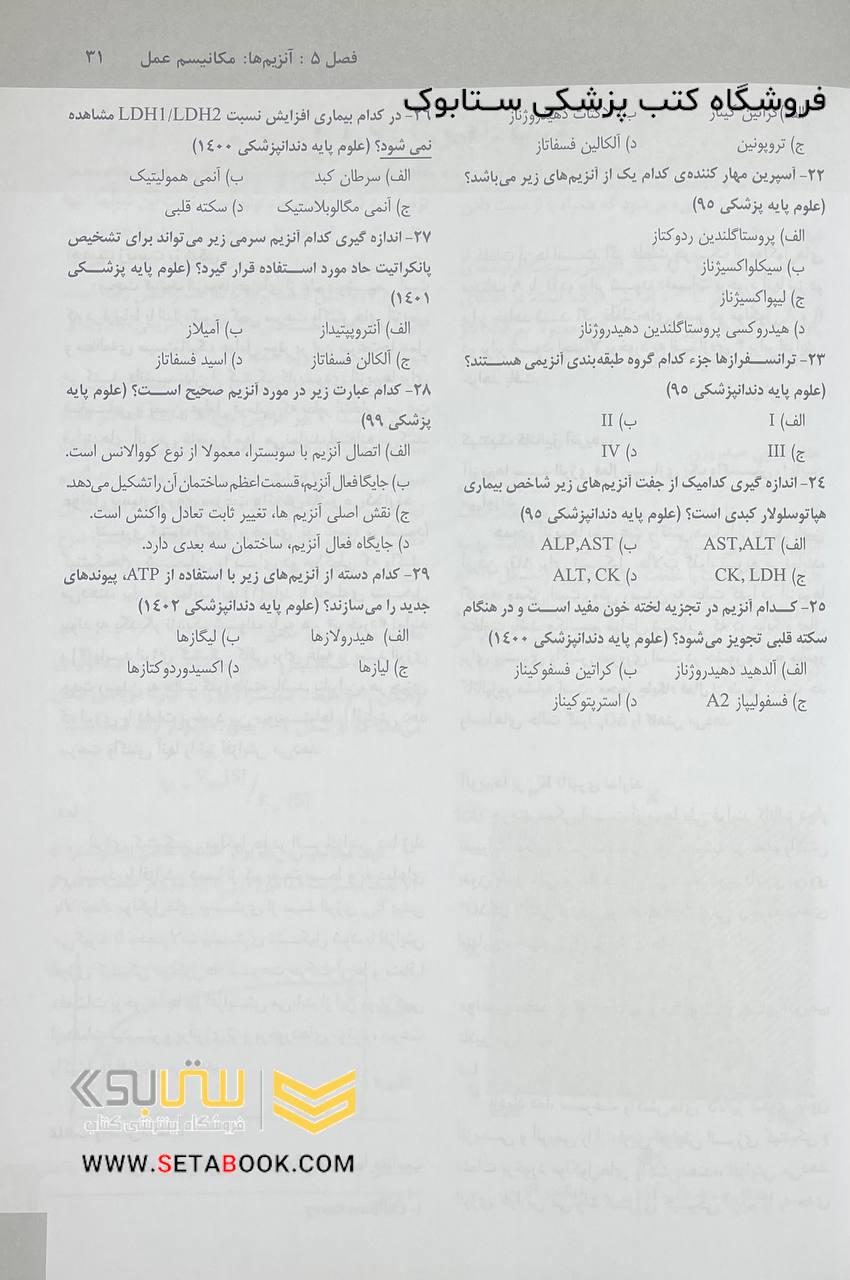 فصل ۵ : آنزیم‌ها: مکانیسم عمل ۳۱
فروشگاه کتب پزشکی ستابوک
الف) کراتین کیناز ب) لاکتات دهیدروژناز
ج) تروپونین د) آلکالین فسفاتاز
۲۲- آسپرین مهار کننده‌ی کدام یک از آنزیم‌های زیر می‌باشد؟
(علوم پایه پزشکی ۹۵)
الف) پروستاگلندین ردوکتاز
ب) سیکلواکسیژناز
ج) لیپواکسیژناز
د) هیدروکسی پروستاگلندین دهیدروژناز
۲۳- ترانسفرازها جزء کدام گروه طبقه‌بندی آنزیمی هستند؟
(علوم پایه دندانپزشکی ۹۵)
الف) I ب) II
ج) III د) IV
۲۴- اندازه گیری کدامیک از جفت آنزیم‌های زیر شاخص بیماری
هپاتوسلولار کبدی است؟ (علوم پایه دندانپزشکی ۹۵)
الف) AST,ALT ب) ALP,AST
ج) CK, LDH د) ALT, CK
۲۵- کدام آنزیم در تجزیه لخته خون مفید است و در هنگام
سکته قلبی تجویز می‌شود؟ (علوم پایه دندانپزشکی ۱۴۰۰)
الف) آلدهید دهیدروژناز ب) کراتین فسفوکیناز
ج) فسفولیپاز A2 د) استرپتوکیناز
۲۶- در کدام بیماری افزایش نسبت LDH1/LDH2 مشاهده
نمی شود؟ (علوم پایه دندانپزشکی ۱۴۰۰)
الف) سرطان کبد ب) آنمی همولیتیک
ج) آنمی مگالوبلاستیک د) سکته قلبی
۲۷- اندازه گیری کدام آنزیم سرمی زیر می‌تواند برای تشخیص
پانکراتیت حاد مورد استفاده قرار گیرد؟ (علوم پایه پزشکی
۱۴۰۱)
الف) آنتروپپتیداز ب) آمیلاز
ج) آلکالن فسفاتاز د) اسید فسفاتاز
۲۸- کدام عبارت زیر در مورد آنزیم صحیح است؟ (علوم پایه
پزشکی ۹۹)
الف) اتصال آنزیم با سوبسترا، معمولا از نوع کووالانس است.
ب) جایگاه فعال آنزیم، قسمت اعظم ساختمان آن را تشکیل می‌دهد.
ج) نقش اصلی آنزیم ها، تغییر ثابت تعادل واکنش است.
د) جایگاه فعال آنزیم، ساختمان سه بعدی دارد.
۲۹- کدام دسته از آنزیم‌های زیر با استفاده از ATP، پیوندهای
جدید را می‌سازند؟ (علوم پایه دندانپزشکی ۱۴۰۲)
الف) هیدرولازها ب) لیگازها
ج) لیازها د) اکسیدوردوکتازها
ستابوک
فروشگاه اینترنتی کتاب
WWW.SETABOOK.COM